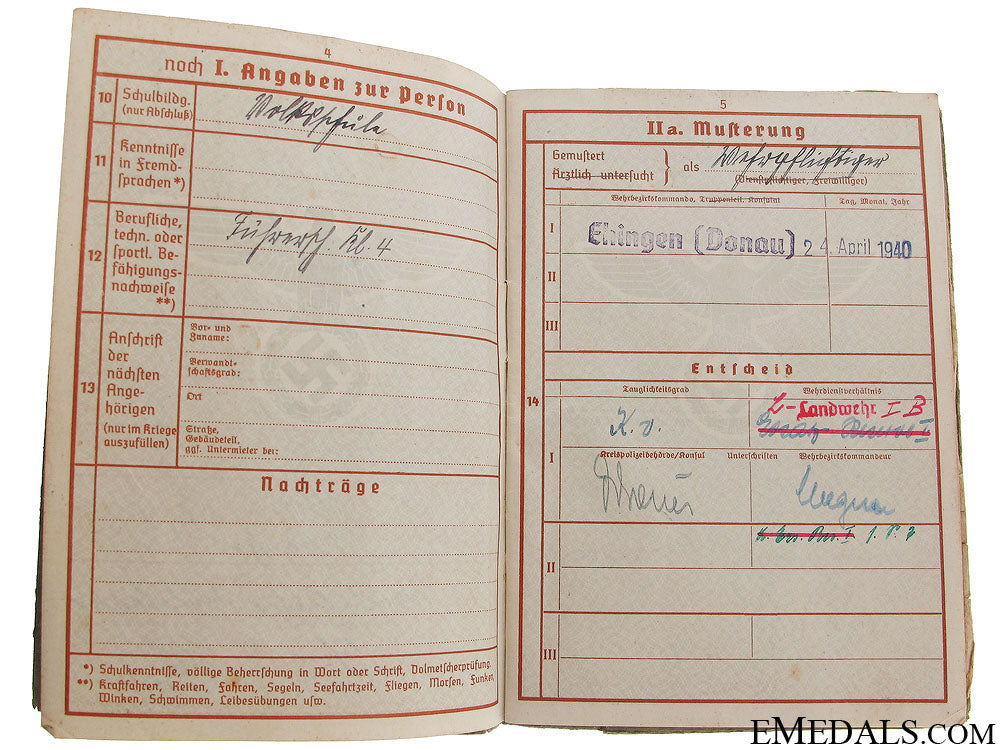 4
noch I. Angaben zur Person
10
Schulbildg.
(nur Abschluß)
Volksschule
11
Kenntnisse
in Fremd-
sprachen *)
12
Berufliche,
techn. oder
sportl. Be-
fähigungs-
nachweise
**)
Führersch. Kl. 4
13
Anschrift
der
nächsten
Ange-
hörigen
(nur im Kriege
auszufüllen)
Vor- und
Zuname:
Verwandt-
schaftsgrad:
Ort
Straße,
Gebäudeteil,
ggf. Untermieter bei:
Nachträge
*) Schulkenntnisse, völlige Beherrschung in Wort oder Schrift, Dolmetscherprüfung.
**) Kraftfahren, Reiten, Fahren, Segeln, Seefahrtzeit, Fliegen, Morsen, Funken,
Winken, Schwimmen, Leibesübungen usw.
5
IIa. Musterung
Gemustert
Ärztlich untersucht } als Wehrpflichtiger
(Dienstpflichtiger, Freiwilliger)
Wehrbezirkskommando, Truppenteil, Konsulat
Tag, Monat, Jahr
I
Ehingen (Donau) 24. April 1940
II
III
Entscheid
14
Tauglichkeitsgrad
Wehrdienstverhältnis
I
K.v.
L-Landwehr I B
Kreispolizeibehörde/Konsul
Unterschriften
Wehrbezirkskommandeur
II
III
EMEDALS.COM